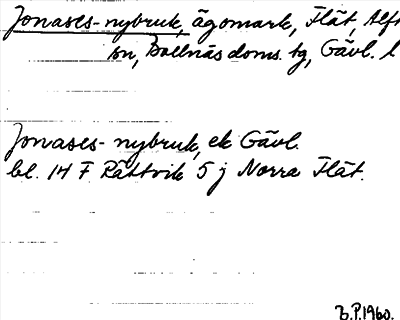 Jonases-nybruk, ägomark, Flät, Alft
sn, Bollnäs doms. tg, Gävl. l
Jonases-nybruk, ek Gävl.
bl. 14 F Rättvik 5 j Norra Flät.
B.P.1960.